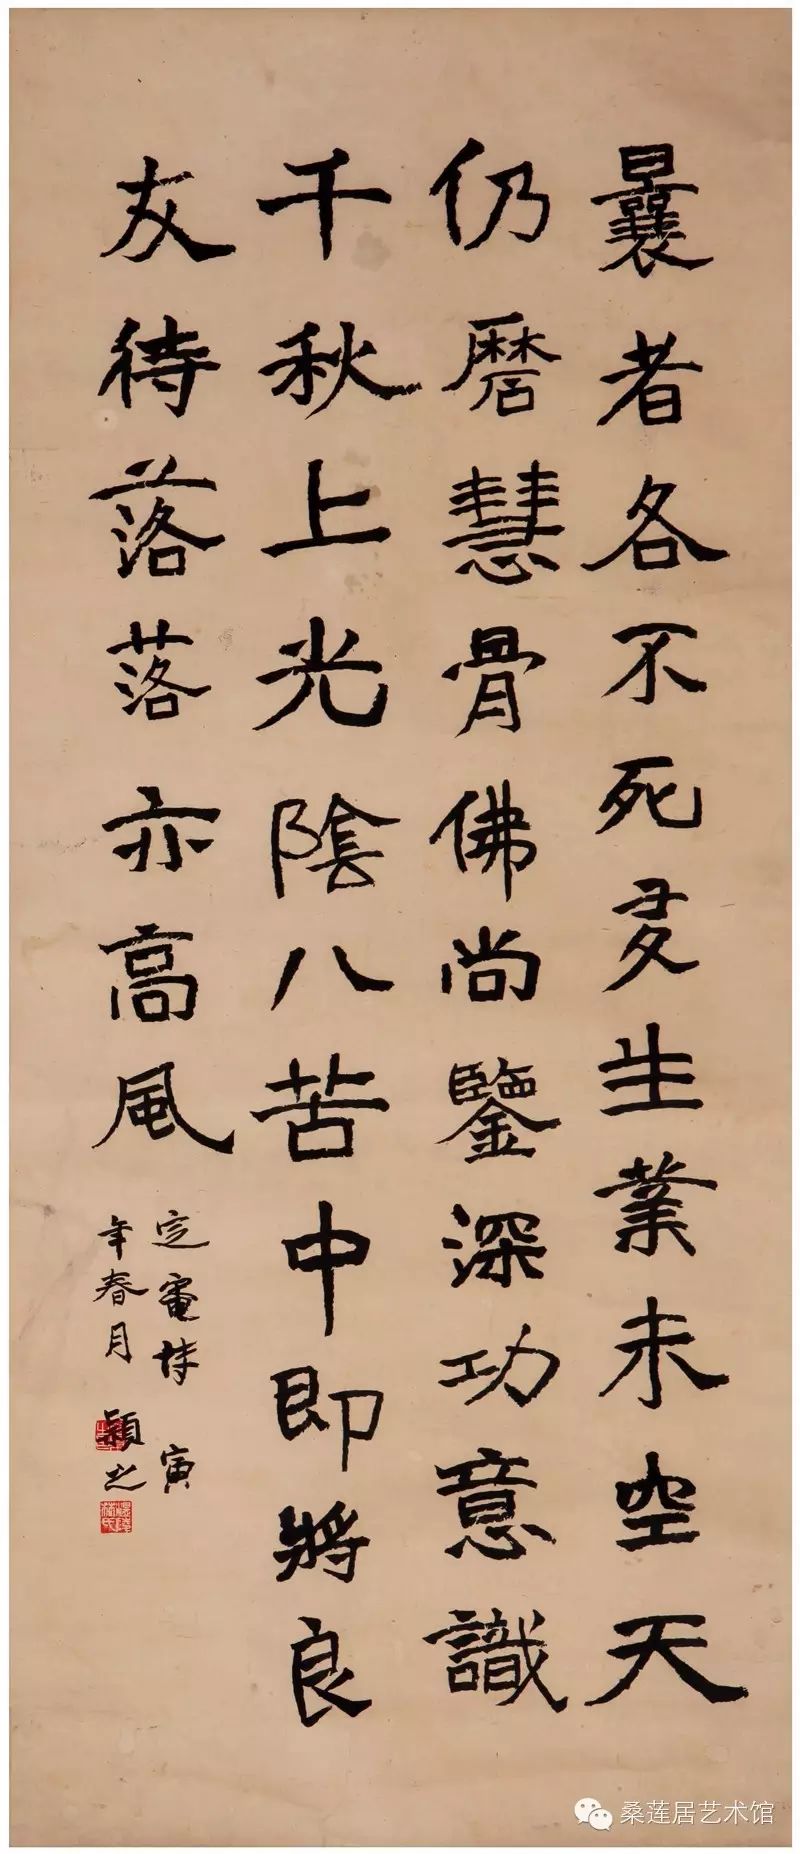 曩者各不死受生業未空天
仍磨慧骨佛尚鑒深功意識
千秋上光陰八苦中即將良
友待落落亦高風
定詩 寅
年春月 穎之
桑莲居艺术馆